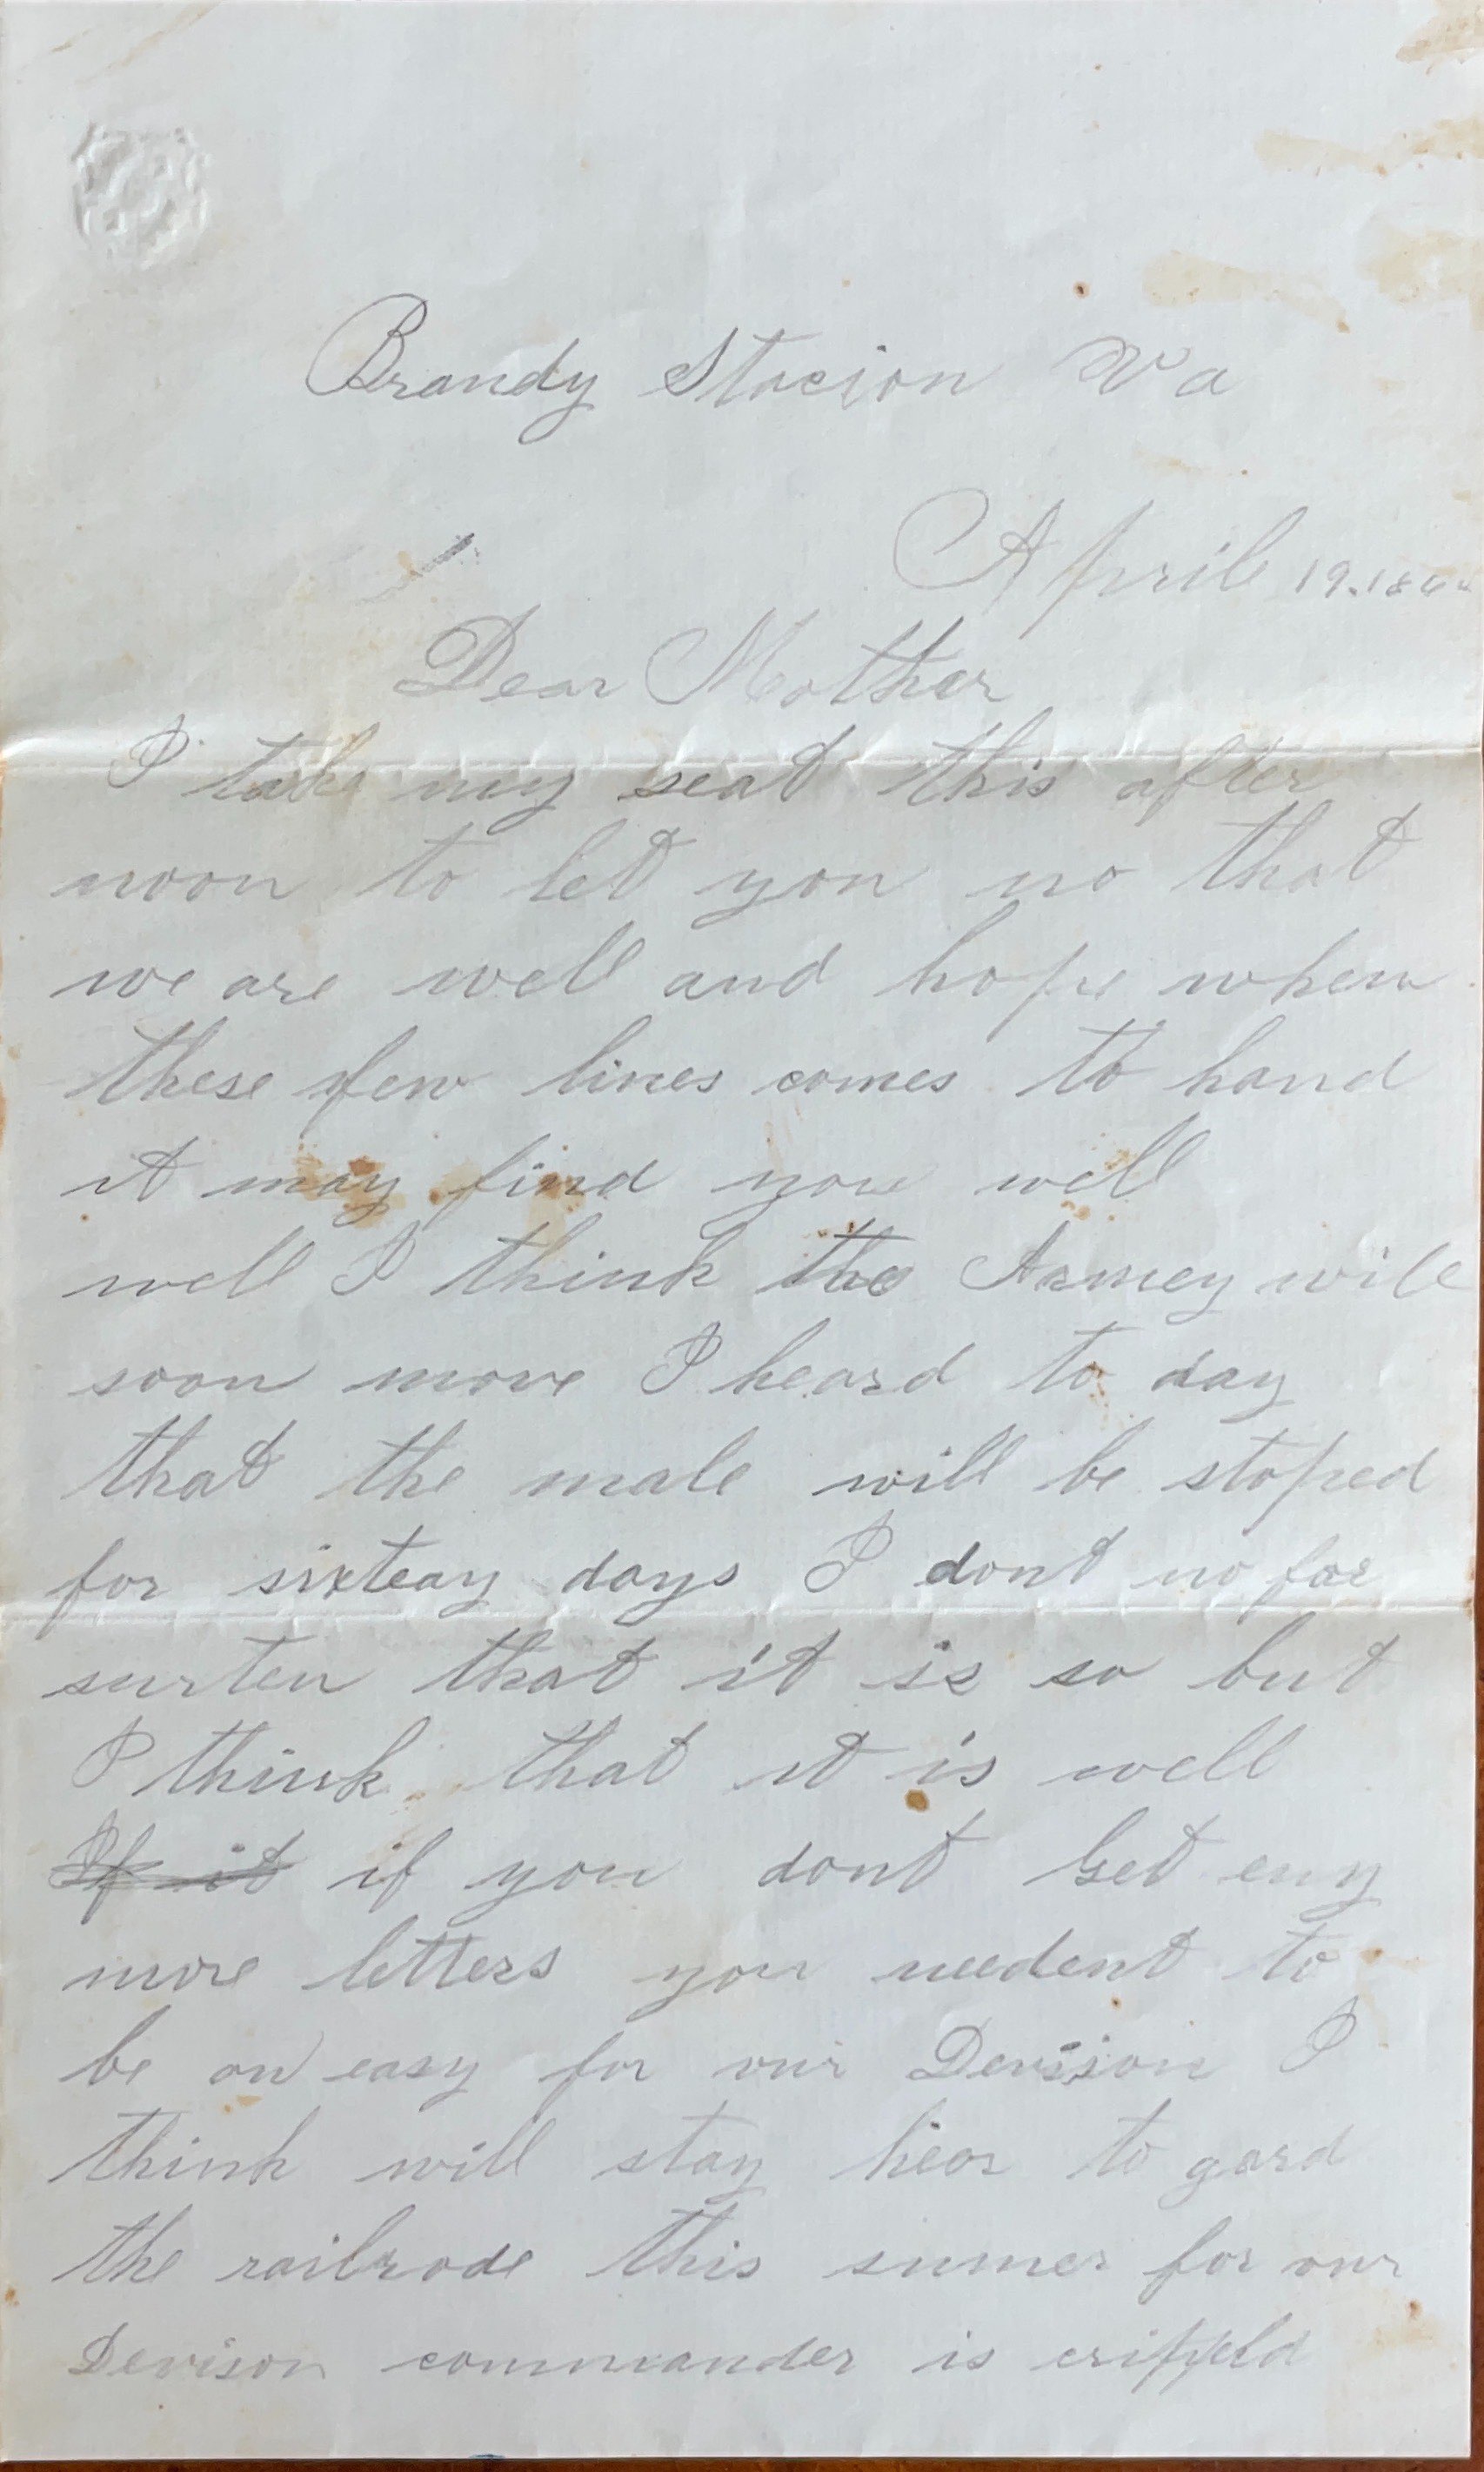 Brandy Stacion Va
April 19. 1864
Dear Mother
I take my seat this after
noon to let you no that
we are well and hope when
these few lines comes to hand
it may find you well
well I think the Armey will
soon move I heard to day
that the male will be stoped
for sixteay days I dont no for
surten that it is so but
I think that it is well
If it if you dont Get eny
more letters you needent to
be on easy for our Devison I
think will stay hear to gard
the railrode this sumer for our
Devison commander is crippeld